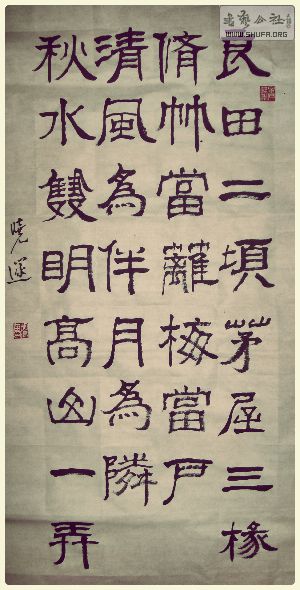 良田二頃茅屋三椽
脩竹當籬梅當戶
清風為伴月為隣
秋水雙明髙山一弄
书艺公社
WWW.SHUFA.ORG